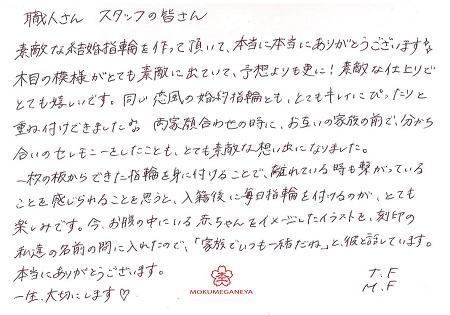 職人さん スタッフの皆さん
素敵な結婚指輪を作って頂いて、本当に本当にありがとうございます!!
木目の模様がとても素敵に出ていて、予想よりも更に!素敵な仕上りで
とても嬉しいです。同じ恋風の婚約指輪とも、とてもキレイにぴったりと
重ね付けできました♪ 両家顔合わせの時に、お互いの家族の前で、分かち
合いのセレモニーをしたことも、とても素敵な想い出になりました。
一枚の板からできた指輪を身に付けることで、離れている時も繋がっている
ことを感じられることを思うと、入籍後に毎日指輪を付けるのが、とても
楽しみです。今、お腹の中にいる赤ちゃんをイメージしたイラストを、刻印の
私達の名前の間に入れたので、「家族でいつも一緒だね」と、彼と話しています。
本当にありがとうございます。
一生、大切にします♡
MOKUMEGANEYA
T.F
M.F